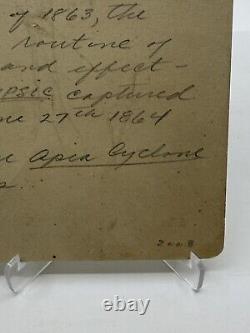 of 1863, the
routine of
and effect-
PSIC captured
ne 27th 1864
Apia Cyclone
s.
200 B
ebay